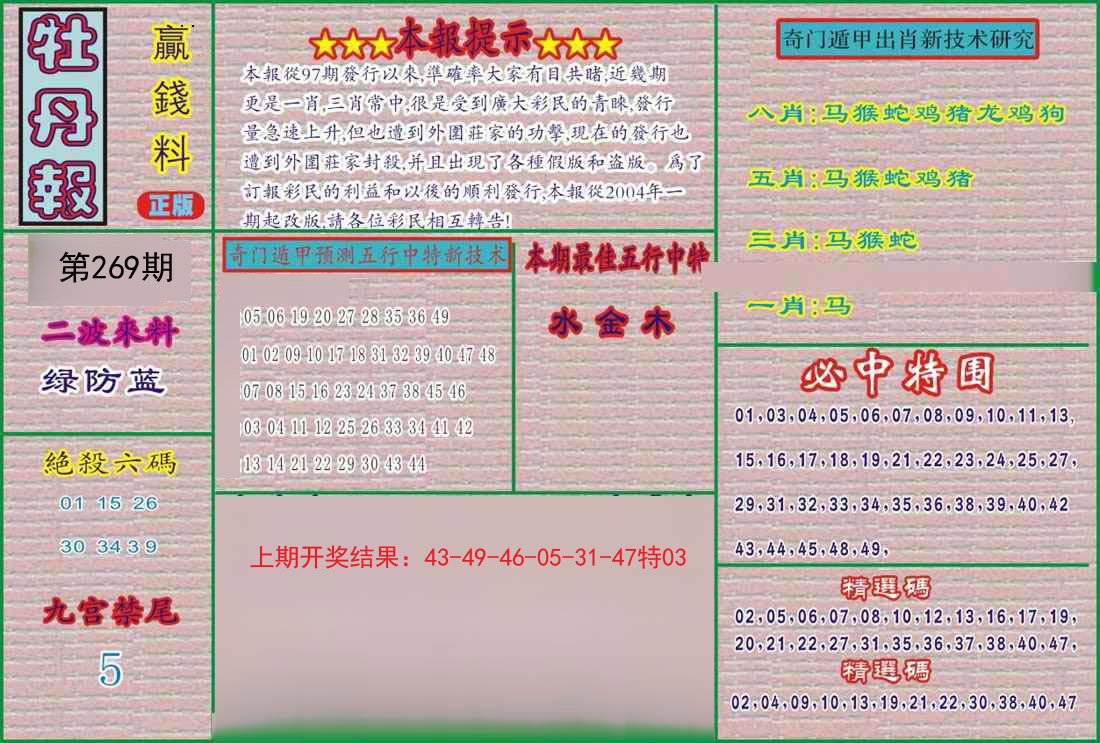 牡丹報
贏錢料
正版
★★★本報提示★★★
本報從97期發行以來,準確率大家有目共睹,近幾期
更是一肖,三肖常中,很是受到廣大彩民的青睞,發行
量急速上升,但也遭到外圍莊家的功擊,現在的發行也
遭到外圍莊家封殺,并且出現了各種假版和盗版。爲了
訂報彩民的利益和以後的順利發行,本報從2004年一
期起改版,請各位彩民相互轉告!
奇门遁甲出肖新技术研究
八肖:马猴蛇鸡猪龙鸡狗
五肖:马猴蛇鸡猪
三肖:马猴蛇
一肖:马
第269期
二波來料
绿防蓝
奇门遁甲预测五行中特新技术
05 06 19 20 27 28 35 36 49
01 02 09 10 17 18 31 32 39 40 47 48
07 08 15 16 23 24 37 38 45 46
03 04 11 12 25 26 33 34 41 42
13 14 21 22 29 30 43 44
本期最佳五行中特
水 金 木
絕殺六碼
01 15 26
30 34 3 9
九宫禁尾
5
上期开奖结果：43-49-46-05-31-47特03
必中特围
01,03,04,05,06,07,08,09,10,11,13,
15,16,17,18,19,21,22,23,24,25,27,
29,31,32,33,34,35,36,38,39,40,42
43,44,45,48,49,
精選碼
02,05,06,07,08,10,12,13,16,17,19,
20,21,22,27,31,35,36,37,38,40,47,
精選碼
02,04,09,10,13,19,21,22,30,38,40,47